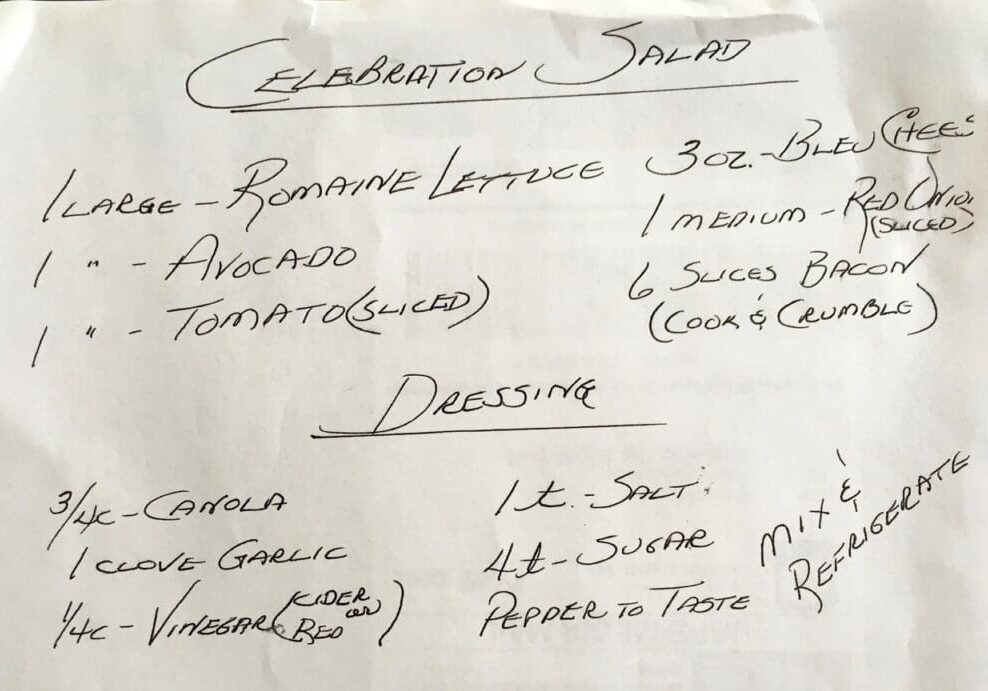 CELEBRATION SALAD
1 LARGE - ROMAINE LETTUCE
1 " - AVOCADO
1 " - TOMATO (SLICED)
3 OZ. - BLEU CHEE
1 MEDIUM - RED ONIO
(SLICED)
6 SLICES BACON
(COOK & CRUMBLE)
DRESSING
3/4C - CANOLA
1 CLOVE GARLIC
1/4C - VINEGAR (CIDER or RED)
1 t. - SALT
4 t - SUGAR
PEPPER TO TASTE
MIX &
REFRIGERATE